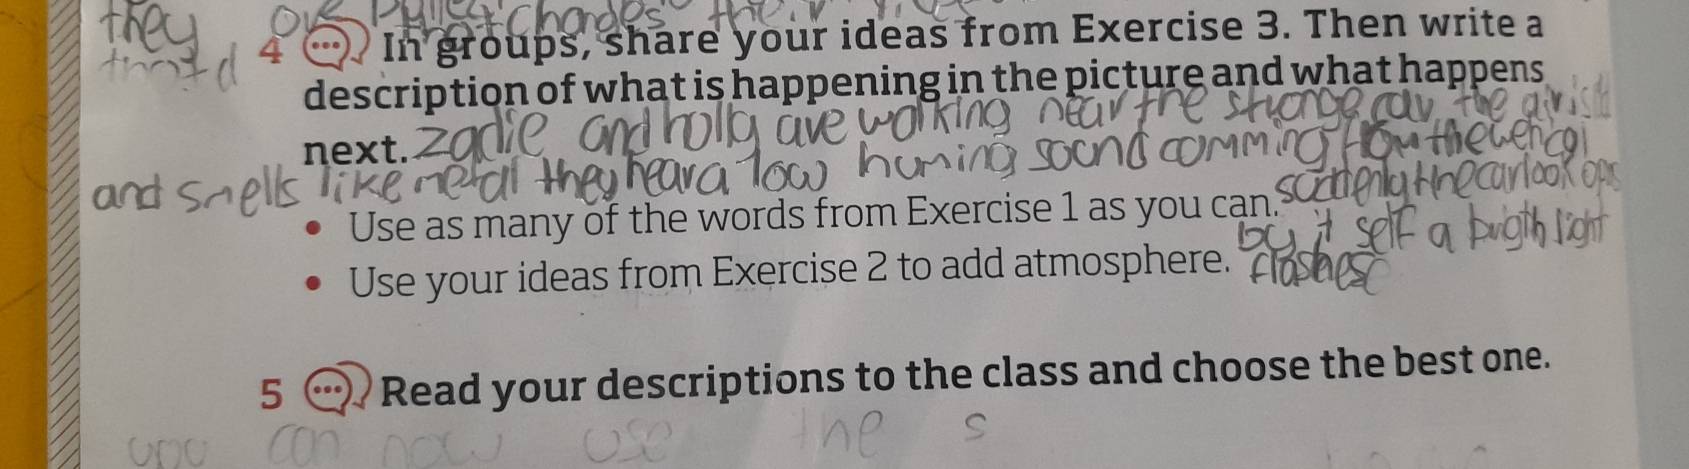 they are change their
4 In groups, share your ideas from Exercise 3. Then write a
description of what is happening in the picture and what happens
next. zadie and holly are walking near the strange car the air is
and smells like metal they hear a low huming sound comming from the
• Use as many of the words from Exercise 1 as you can. suddenly the car look
by it self a brigth light
• Use your ideas from Exercise 2 to add atmosphere. flashes
5 Read your descriptions to the class and choose the best one.
you can now use the s